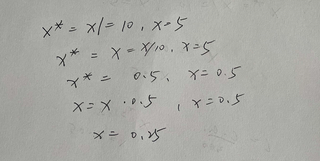 x* = x/= 10, x=5
x* = x = x/10, x=5
x* = 0.5, x=0.5
x=x · 0.5, x=0.5
x= 0.25